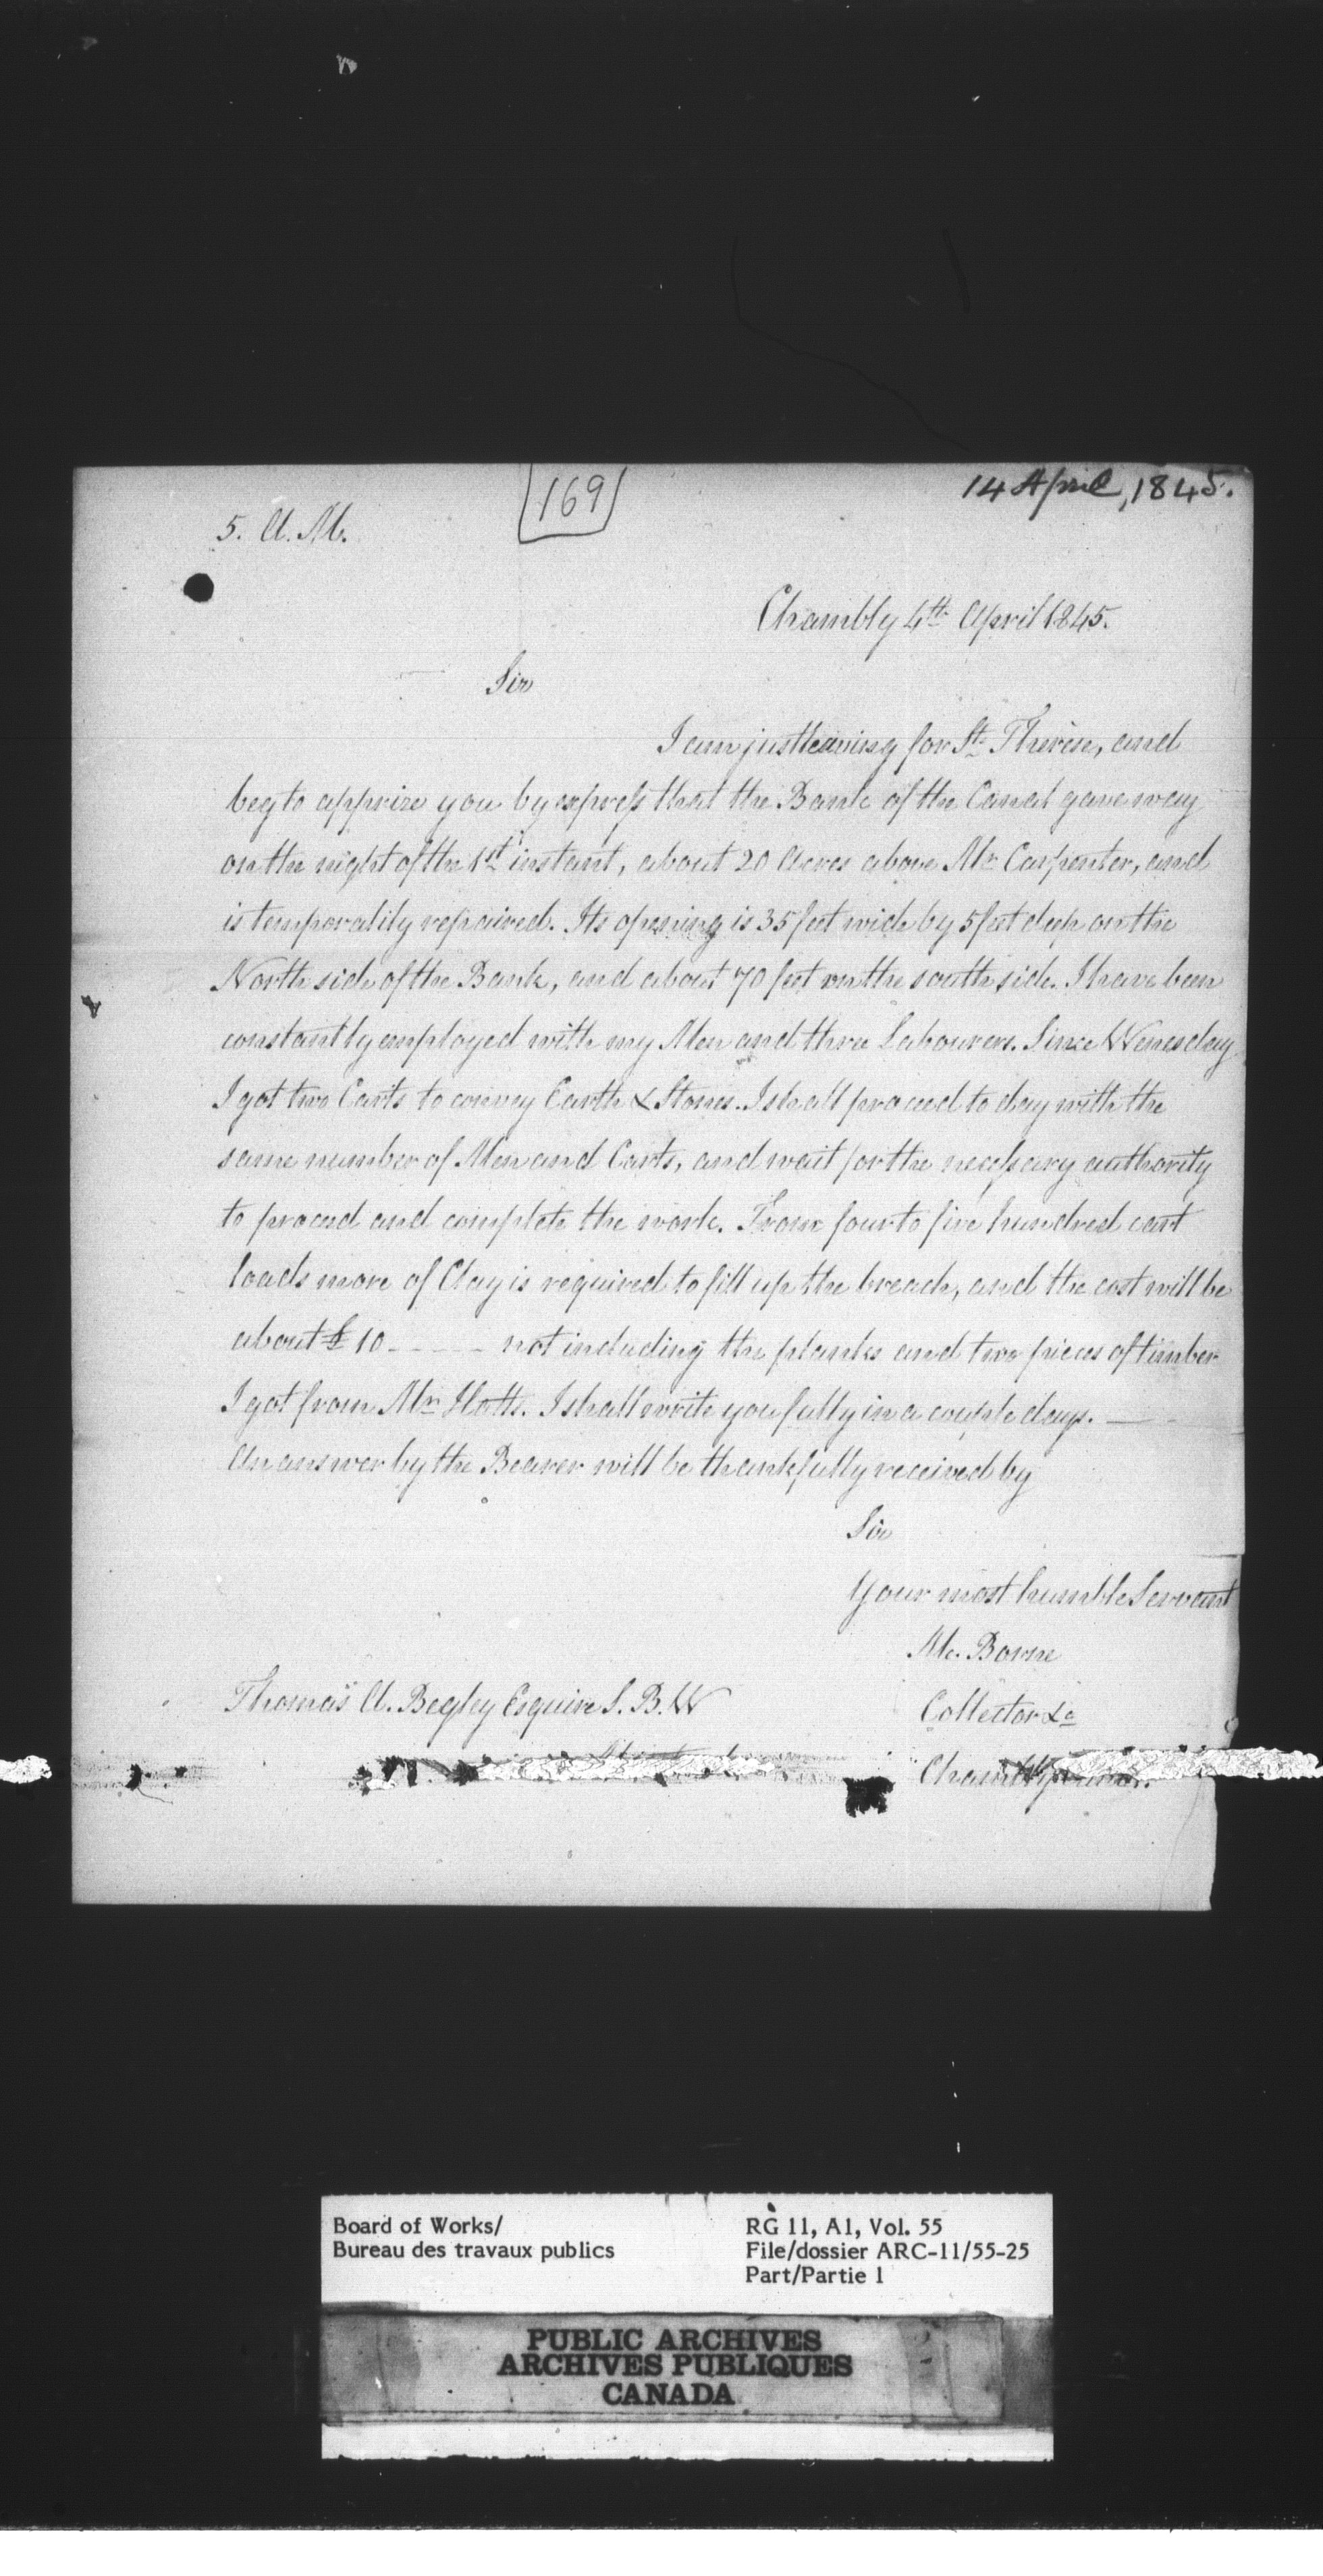 169
14 April, 1845.
5. A.M.
Chambly 4th April 1845.
Sir
I am just leaving for St. Thérèse, and
beg to apprize you by express that the Bank of the Canal gave way
on the night of the 1st instant, about 20 Acres above Mr Carpenter, and
is temporality repaired. Its opening is 35 feet wide by 5 feet deep on the
North side of the Bank, and about 70 feet on the south side. I have been
constantly employed with my Men and three Labourers. Since Wenesday
I got two Carts to convey Earth & Stones. I shall proceed to day with the
same number of Men and Carts, and wait for the necessary authority
to proceed and complete the work. From four to five hundred cart
loads more of Clay is required to fill up the breach, and the cost will be
about £ 10 - - - - - not including the planks and two pieces of timber
I got from Mr Hatt. I shall write you fully in a couple days. —
An answer by the Bearer will be thankfully received by
Sir
Your most humble Servant
Mc. Borne
Thomas A. Begley Esquire S. B. W
Collector &c
Chambly
Board of Works/
Bureau des travaux publics
RG 11, A1, Vol. 55
File/dossier ARC-11/55-25
Part/Partie 1
PUBLIC ARCHIVES
ARCHIVES PUBLIQUES
CANADA